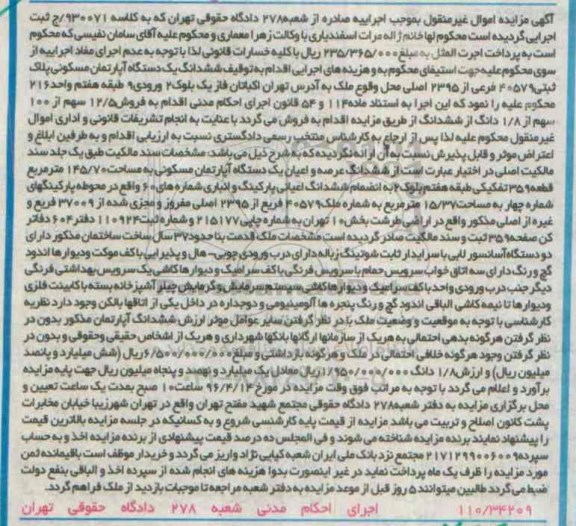 آگهی مزایده اموال غیرمنقول بموجب اجراییه صادره از شعبه ۲۷۸ دادگاه حقوقی تهران که به کلاسه ۹۳۰۰۷۱/ج ثبت
اجرایی گردیده است محکوم لها خانم ژاله مراث بختیاری با وکالت زهرا معماری و محکوم علیه آقای سامان نفیسی که محکوم
است به پرداخت اجرت المثل به مبلغ ۲۳۵/۳۶۵/۰۰۰ ریال با کلیه خسارات قانونی لذا با توجه به عدم اجرای مفاد اجراییه از
سوی محکوم علیه جهت استیفای محکوم به و هزینه های اجرایی اقدام به توقیف ششدانگ یک دستگاه آپارتمان مسکونی پلاک
ثبتی ۴۰۵۷۹ فرعی از ۲۳۹۵ اصلی محل وقوع ملک به آدرس تهران اکباتان فاز یک بلوک ۲ ورودی ۹ طبقه هفتم واحد ۲۱۶
محکوم علیه را نمود که این اجرا به استناد ماده ۱۱۴ و ۵۴ قانون اجرای احکام مدنی اقدام به فروش ۱۲/۵ سهم از ۱۰۰
سهم از ۱/۸ دانگ از ششدانگ از طریق مزایده اقدام به فروش می گردد با عنایت به انجام تشریفات قانونی و اداری اموال
غیرمنقول محکوم علیه لذا پس از ارجاع به کارشناس منتخب رسمی دادگستری نسبت به ارزیابی اقدام و به طرفین ابلاغ و
اعتراض موثر و قابل پذیرش نسبت به آن ارائه نگردیده که به شرح ذیل می باشد: مشخصات سند مالکیت طبق یک جلد سند
مالکیت اصلی در اختیار عبارت است از ششدانگ عرصه و اعیان یک دستگاه آپارتمان مسکونی به مساحت ۱۴۵/۷۰ مترمربع
قطعه ۳۵۹ تفکیکی طبقه هفتم بلوک ۲ به انضمام ششدانگ اعیانی پارکینگ و انباری شماره های ۶۰ واقع در محوطه پارکینگهای
شماره چهار به مساحت ۱۵/۳۷ مترمربع به شماره ملک ۴۰۵۷۹ فریع از ۲۳۹۵ اصلی مفروز و مجزی شده از ۳۷۰۰۹ فریع و
غیره از اصلی مذکور واقع در اراضی طرشت بخش ۱۰ تهران به شماره چاپی ۲۱۵۱۷۷ و شماره ثبت ۱۱۰۹۲۴ دفتر ۶۰۴ دفاتر
کن صفحه ۳۵۹ ثبت و سند مالکیت صادر گردیده است مشخصات ملک قدمت بنا حدود ۳۷ سال ساخت ساختمان مذکور دارای
دو دستگاه آسانسور لابی با سرایدار ثابت شوتینگ زباله دارای درب ورودی چوبی- هال و پذیرایی با کف موکت و دیوارها اندود
گچ و رنگ دارای سه اتاق خواب سرویس حمام با سرویس فرنگی با کف سرامیک و دیوارها کاشی یک سرویس بهداشتی فرنگی
دیگر جنب درب ورودی واحد با کف سرامیک و دیوارها کاشی سیستم سرمایش و گرمایش چیلر آشپزخانه بسته با کابینت فلزی
ودیوارها تا نیمه کاشی الباقی اندود گچ و رنگ پنجره ها آلومینیومی و دوجداره در داخل یکی از اتاقها بالکن وجود دارد نظریه
کارشناسی با توجه به موقعیت و وضعیت ملک با در نظر گرفتن سایر عوامل موثر ارزش ششدانگ آپارتمان مذکور بدون در
نظر گرفتن هرگونه بدهی احتمالی به هریک از سازمانها ارگانها بانکها شهرداری و هریک از اشخاص حقیقی وحقوقی و بدون در
نظر گرفتن وجود هرگونه خلافی احتمالی در ملک و هرگونه بازداشتی و مبلغ ۶/۵۰۰/۰۰۰/۰۰۰ ریال (شش میلیارد و پانصد
میلیون ریال) و ارزش ۱/۸ دانگ ۱/۹۵۰/۰۰۰/۰۰۰ ریال معادل یک میلیارد و نهصد و پنجاه میلیون ریال جهت پایه مزایده
برآورد و اعلام می گردد با توجه به مراتب فوق وقت مزایده در مورخ ۹۶/۴/۱۴ ساعت ۱۰ صبح بمدت یک ساعت تعیین و
محل برگزاری مزایده به دفتر شعبه ۲۷۸ دادگاه حقوقی مجتمع شهید مفتح تهران واقع در تهران شهرزیبا خیابان مخابرات
پشت کانون اصلاح و تربیت می باشد مزایده از قیمت پایه کارشنسی شروع و به کسانیکه در جلسه مزایده بالاترین قیمت
را پیشنهاد نمایند برنده مزایده شناخته می شوند و فی المجلس ده درصد قیمت پیشنهادی از برنده مزایده اخذ و به حساب
سپرده ۲۱۷۱۲۹۹۰۰۶۰۰۹ مجتمع نزد بانک ملی ایران شعبه کیایی نژاد واریز می گردد و خریدار موظف است باقیمانده ثمن
مورد مزایده را ظرف یک ماه پرداخت نماید در غیر اینصورت بدوا هزینه های انجام شده از سپرده اخذ و الباقی بنفع دولت
ضبط می گردد طالبین میتوانند ۵ روز قبل از موعد مزایده به دفتر شعبه مراجعه تا موجبات بازدید از ملک فراهم گردد
۱۱۰/۳۴۲۰۹ اجرای احکام مدنی شعبه ۲۷۸ دادگاه حقوقی تهران